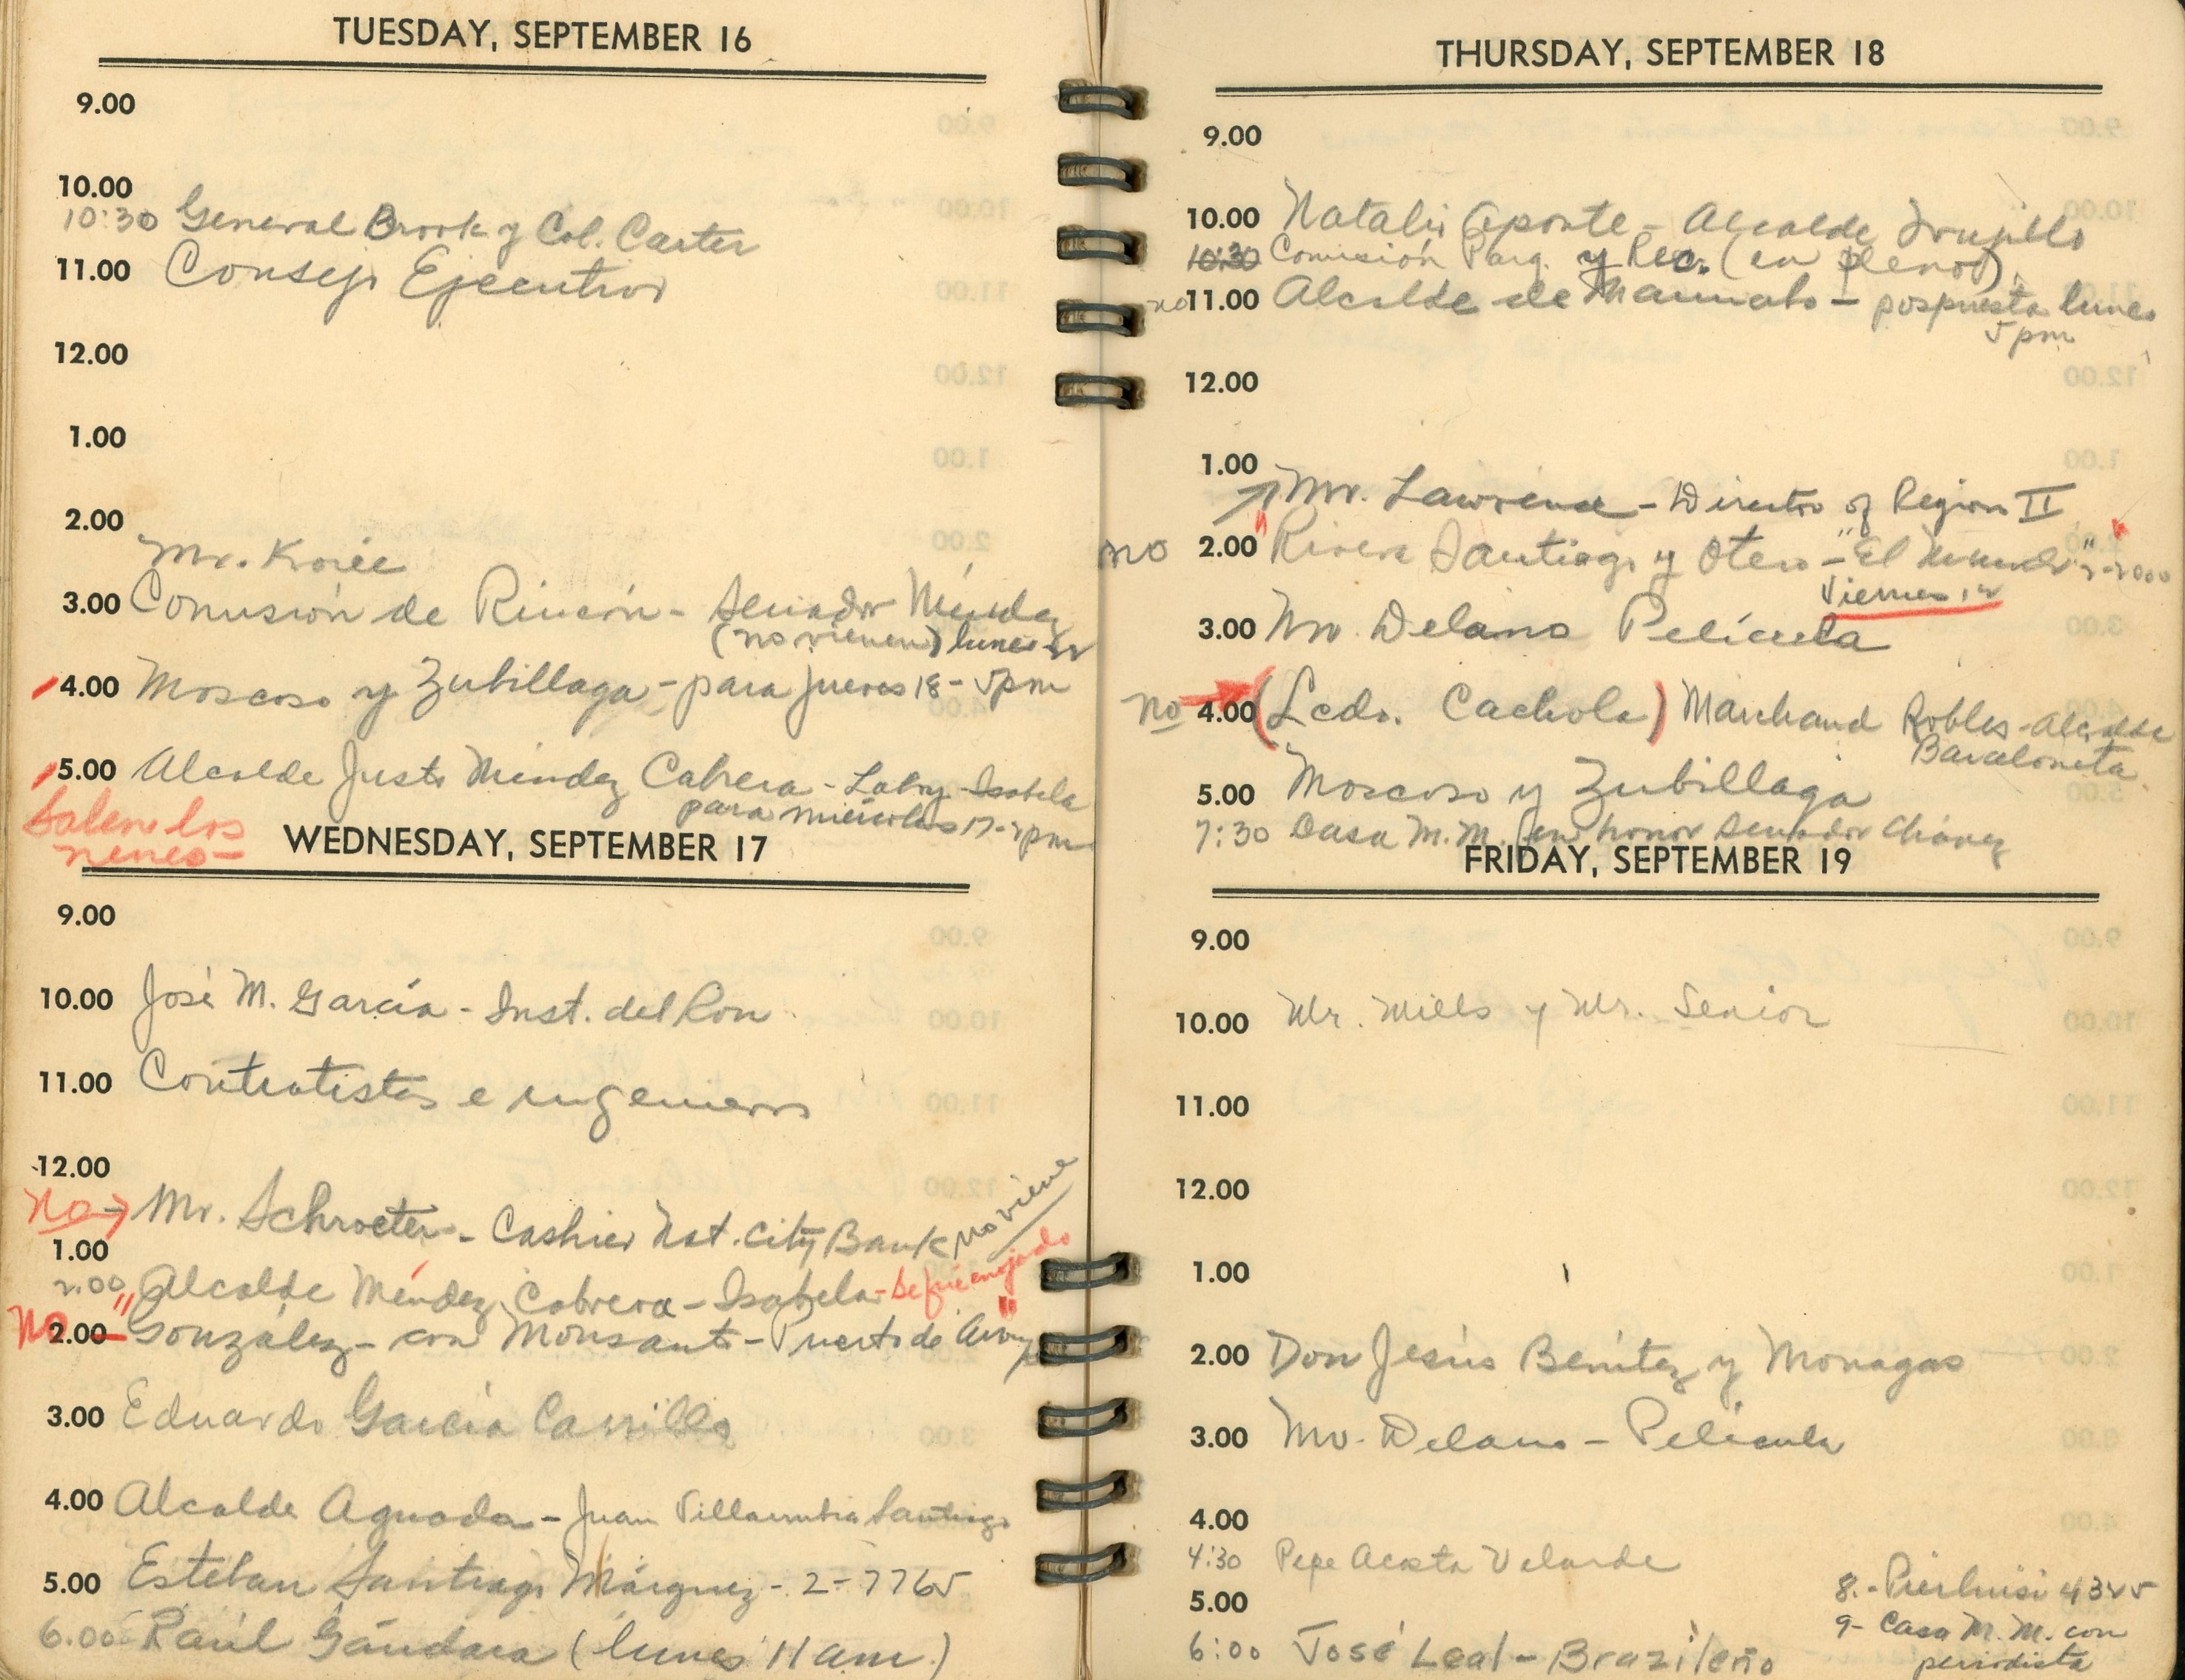 TUESDAY, SEPTEMBER 16
9.00
10.00
10:30 General Brook y Col. Carter
11.00 Consejo Ejecutivo
12.00
1.00
2.00
Mr. Korie
3.00 Comisión de Rincón - Senador Méndez
(no vienen) lunes 22
4.00 Moscoso y Zubillaga - para jueves 18 - 5pm
5.00 Alcalde Justo Méndez Cabrera - Isabela
para miércoles 17 - 2pm
Salen los
nenes
WEDNESDAY, SEPTEMBER 17
9.00
10.00 José M. García - Inst. del Ron
11.00 Contratistas e ingenieros
12.00
no → Mr. Schroeter - Cashier Nat. City Bank no viene
1.00
2:00 Alcalde Méndez Cabrera - Isabela - Se fué enojado
No 2.00 "González - con Monsanto - Puerto de"
3.00 Eduardo García Carrillo
4.00 Alcalde Aguada - Juan Villarrubia Santiago
5.00 Esteban Santiago Márquez - 2-7765
6:00 Raúl Gándara (lunes 11 am.)
THURSDAY, SEPTEMBER 18
9.00
10.00 Natalio Aponte - Alcalde Trujillo
10:30 Comisión Parq. y Rec. (en pleno)
no 11.00 Alcalde de Maunabo - pospuesta lunes
5 pm
12.00
1.00
Mr. Lawrence - Director of Region II
no 2.00 "Rivera Santiago y Otero - "El Mundo" 2-2000"
Viernes 12
3.00 Mr. Delano Película
no 4.00 (Lcdo. Cachola) Marchand Robles - Alcalde
Barceloneta
5.00 Moscoso y Zubillaga
7:30 Casa M.M. en honor Senador Chávez
FRIDAY, SEPTEMBER 19
9.00
10.00 Mr. Mills y Mr. Senior
11.00
12.00
1.00
2.00 Don Jesús Benítez y Monagas
3.00 Mr. Delano - Película
4.00
4:30 Pepe Acosta Velarde
5.00
6:00 José Leal - Brazileño
8.- Pierluisi 4355
9- Casa M.M. con
periodista